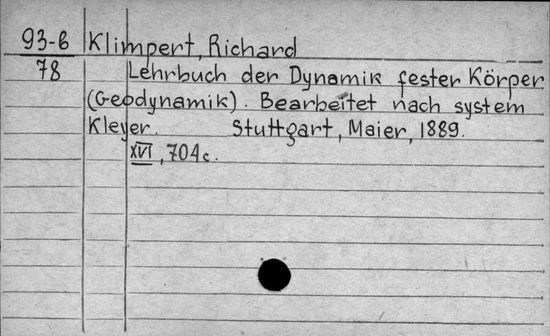 93-6 Klimpert, Richard
78 Lehrbuch der Dynamik fester Körper
(Geodynamik). Bearbeitet nach system
Kleyer. Stuttgart, Maier, 1889.
XVI, 704c.